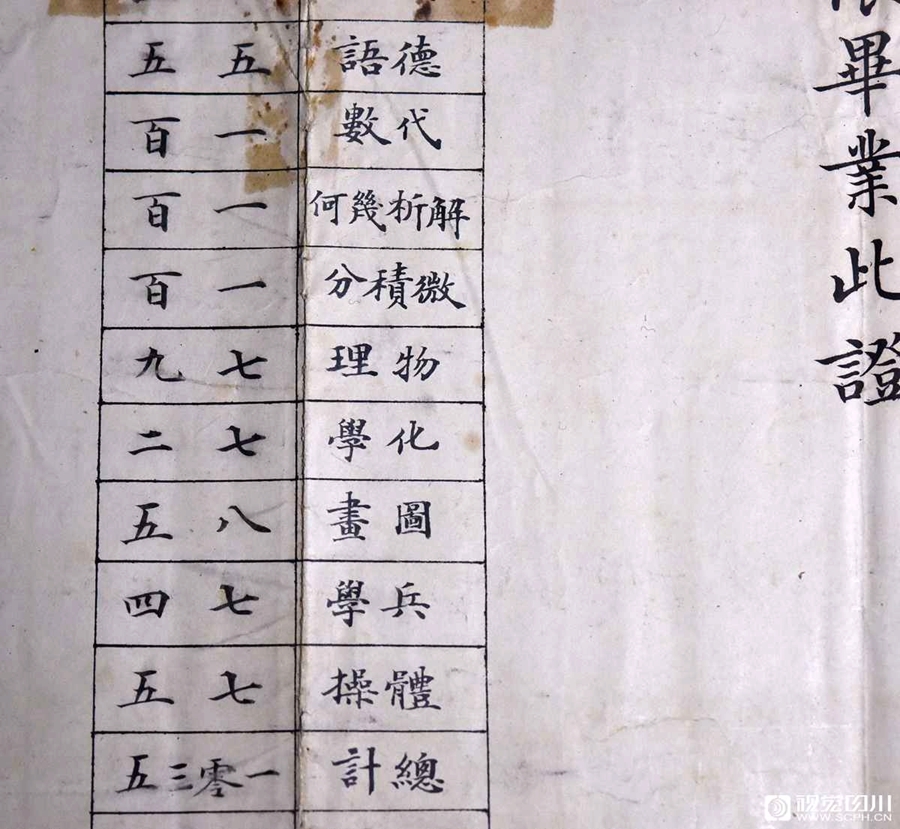 畢業此證
德語 五五
代數 一百
解析幾何 一百
微積分 一百
物理 七九
化學 七二
圖畫 八五
兵學 七四
體操 七五
總計 一零三五
视觉四川
WWW.SCPH.CN